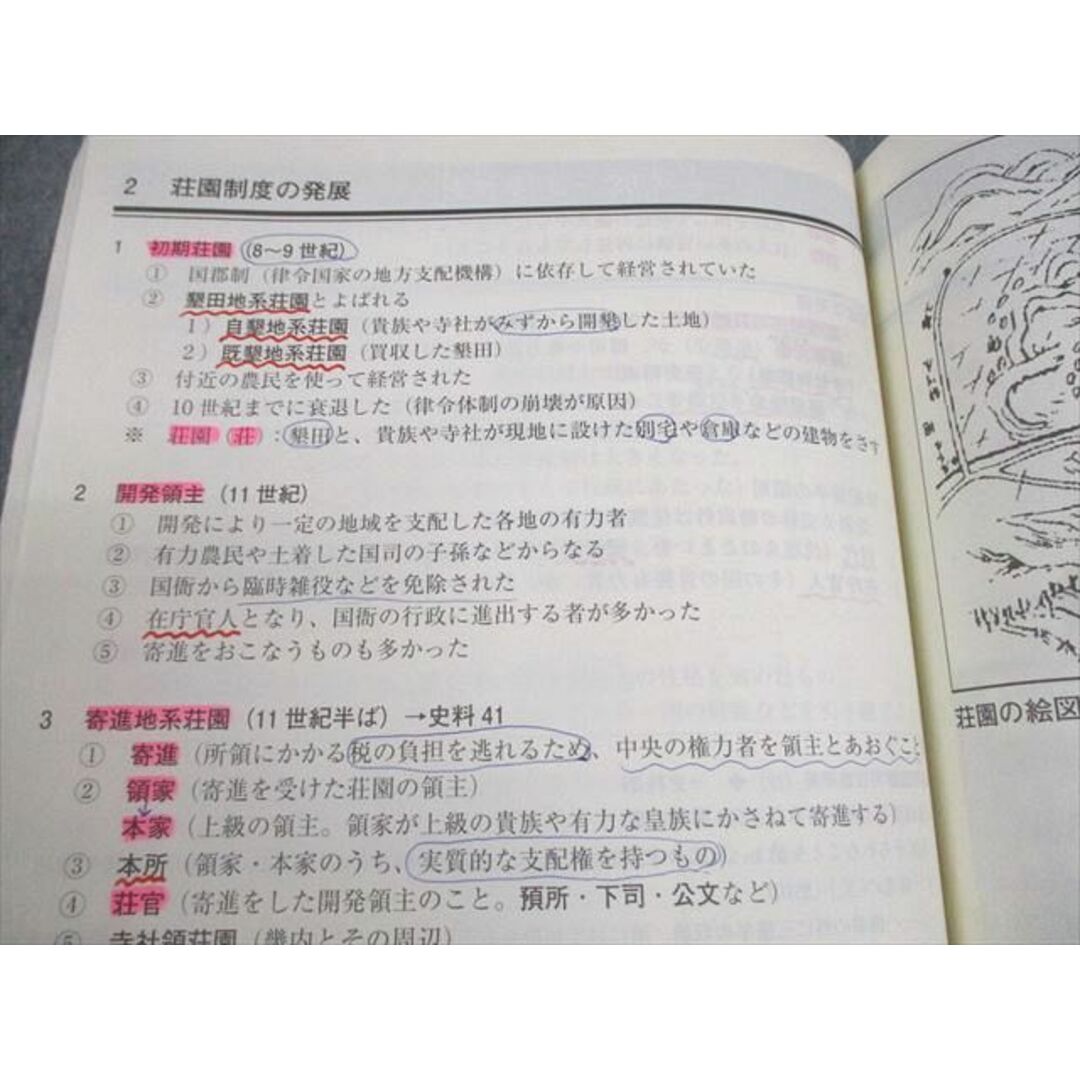 2 荘園制度の発展
1 初期荘園 (8〜9世紀)
① 国郡制（律令国家の地方支配機構）に依存して経営されていた
② 墾田地系荘園とよばれる
1）自墾地系荘園（貴族や寺社がみずから開墾した土地）
2）既墾地系荘園（買収した墾田）
③ 付近の農民を使って経営された
④ 10世紀までに衰退した（律令体制の崩壊が原因）
※ 荘園（荘）：墾田と、貴族や寺社が現地に設けた別宅や倉庫などの建物をさす
2 開発領主（11世紀）
① 開発により一定の地域を支配した各地の有力者
② 有力農民や土着した国司の子孫などからなる
③ 国衙から臨時雑役などを免除された
④ 在庁官人となり、国衙の行政に進出する者が多かった
⑤ 寄進をおこなうものも多かった
3 寄進地系荘園（11世紀半ば）→史料41
① 寄進（所領にかかる税の負担を逃れるため、中央の権力者を領主とあおぐこと
② 領家（寄進を受けた荘園の領主）
↓
本家（上級の領主。領家が上級の貴族や有力な皇族にかさねて寄進する）
③ 本所（領家・本家のうち、実質的な支配権を持つもの）
④ 荘官（寄進をした開発領主のこと。預所・下司・公文など）
⑤ 寺社領荘園（畿内とその周辺）
荘園の絵図